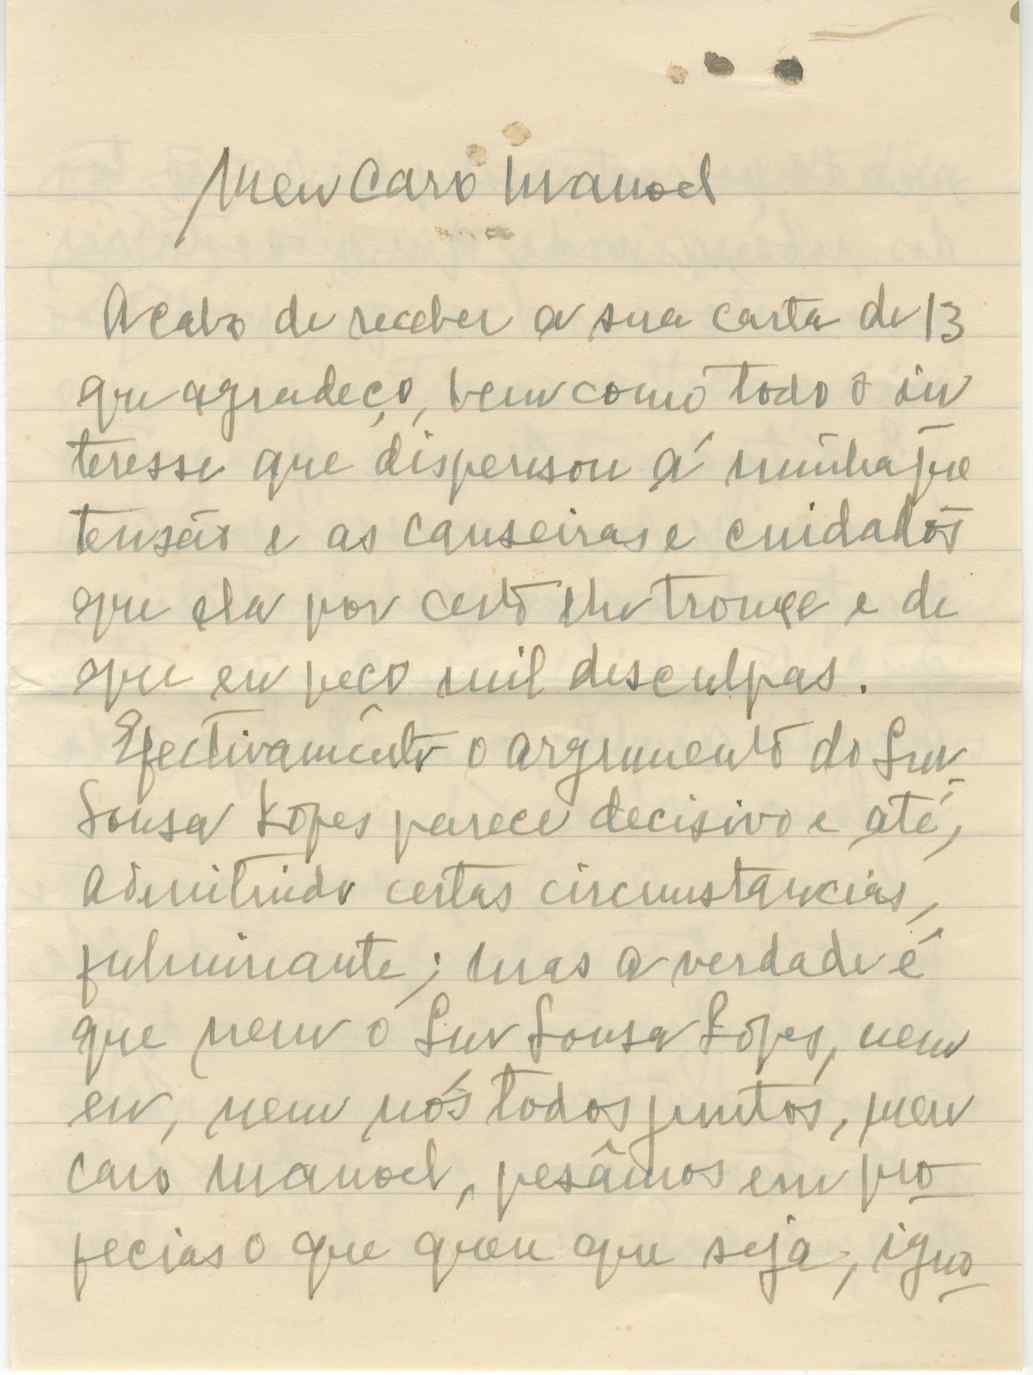 Meu caro Manoel
Acabo de receber a sua carta de 13
que agradeço, bem como todo o in
teresse que dispensou á minha pre
tensão e as canseiras e cuidados
que ela por certo lhe trouxe e de
que eu peço mil desculpas.
Efectivamente o argumento do Snr
Sousa Lopes parece decisivo e até,
admitindo certas circumstancias,
fulminante; mas a verdade é
que nem o Snr Sousa Lopes, nem
eu, nem nós todos juntos, meu
caro Manoel, pesâmos em pro
fecias o que quer que seja, igno